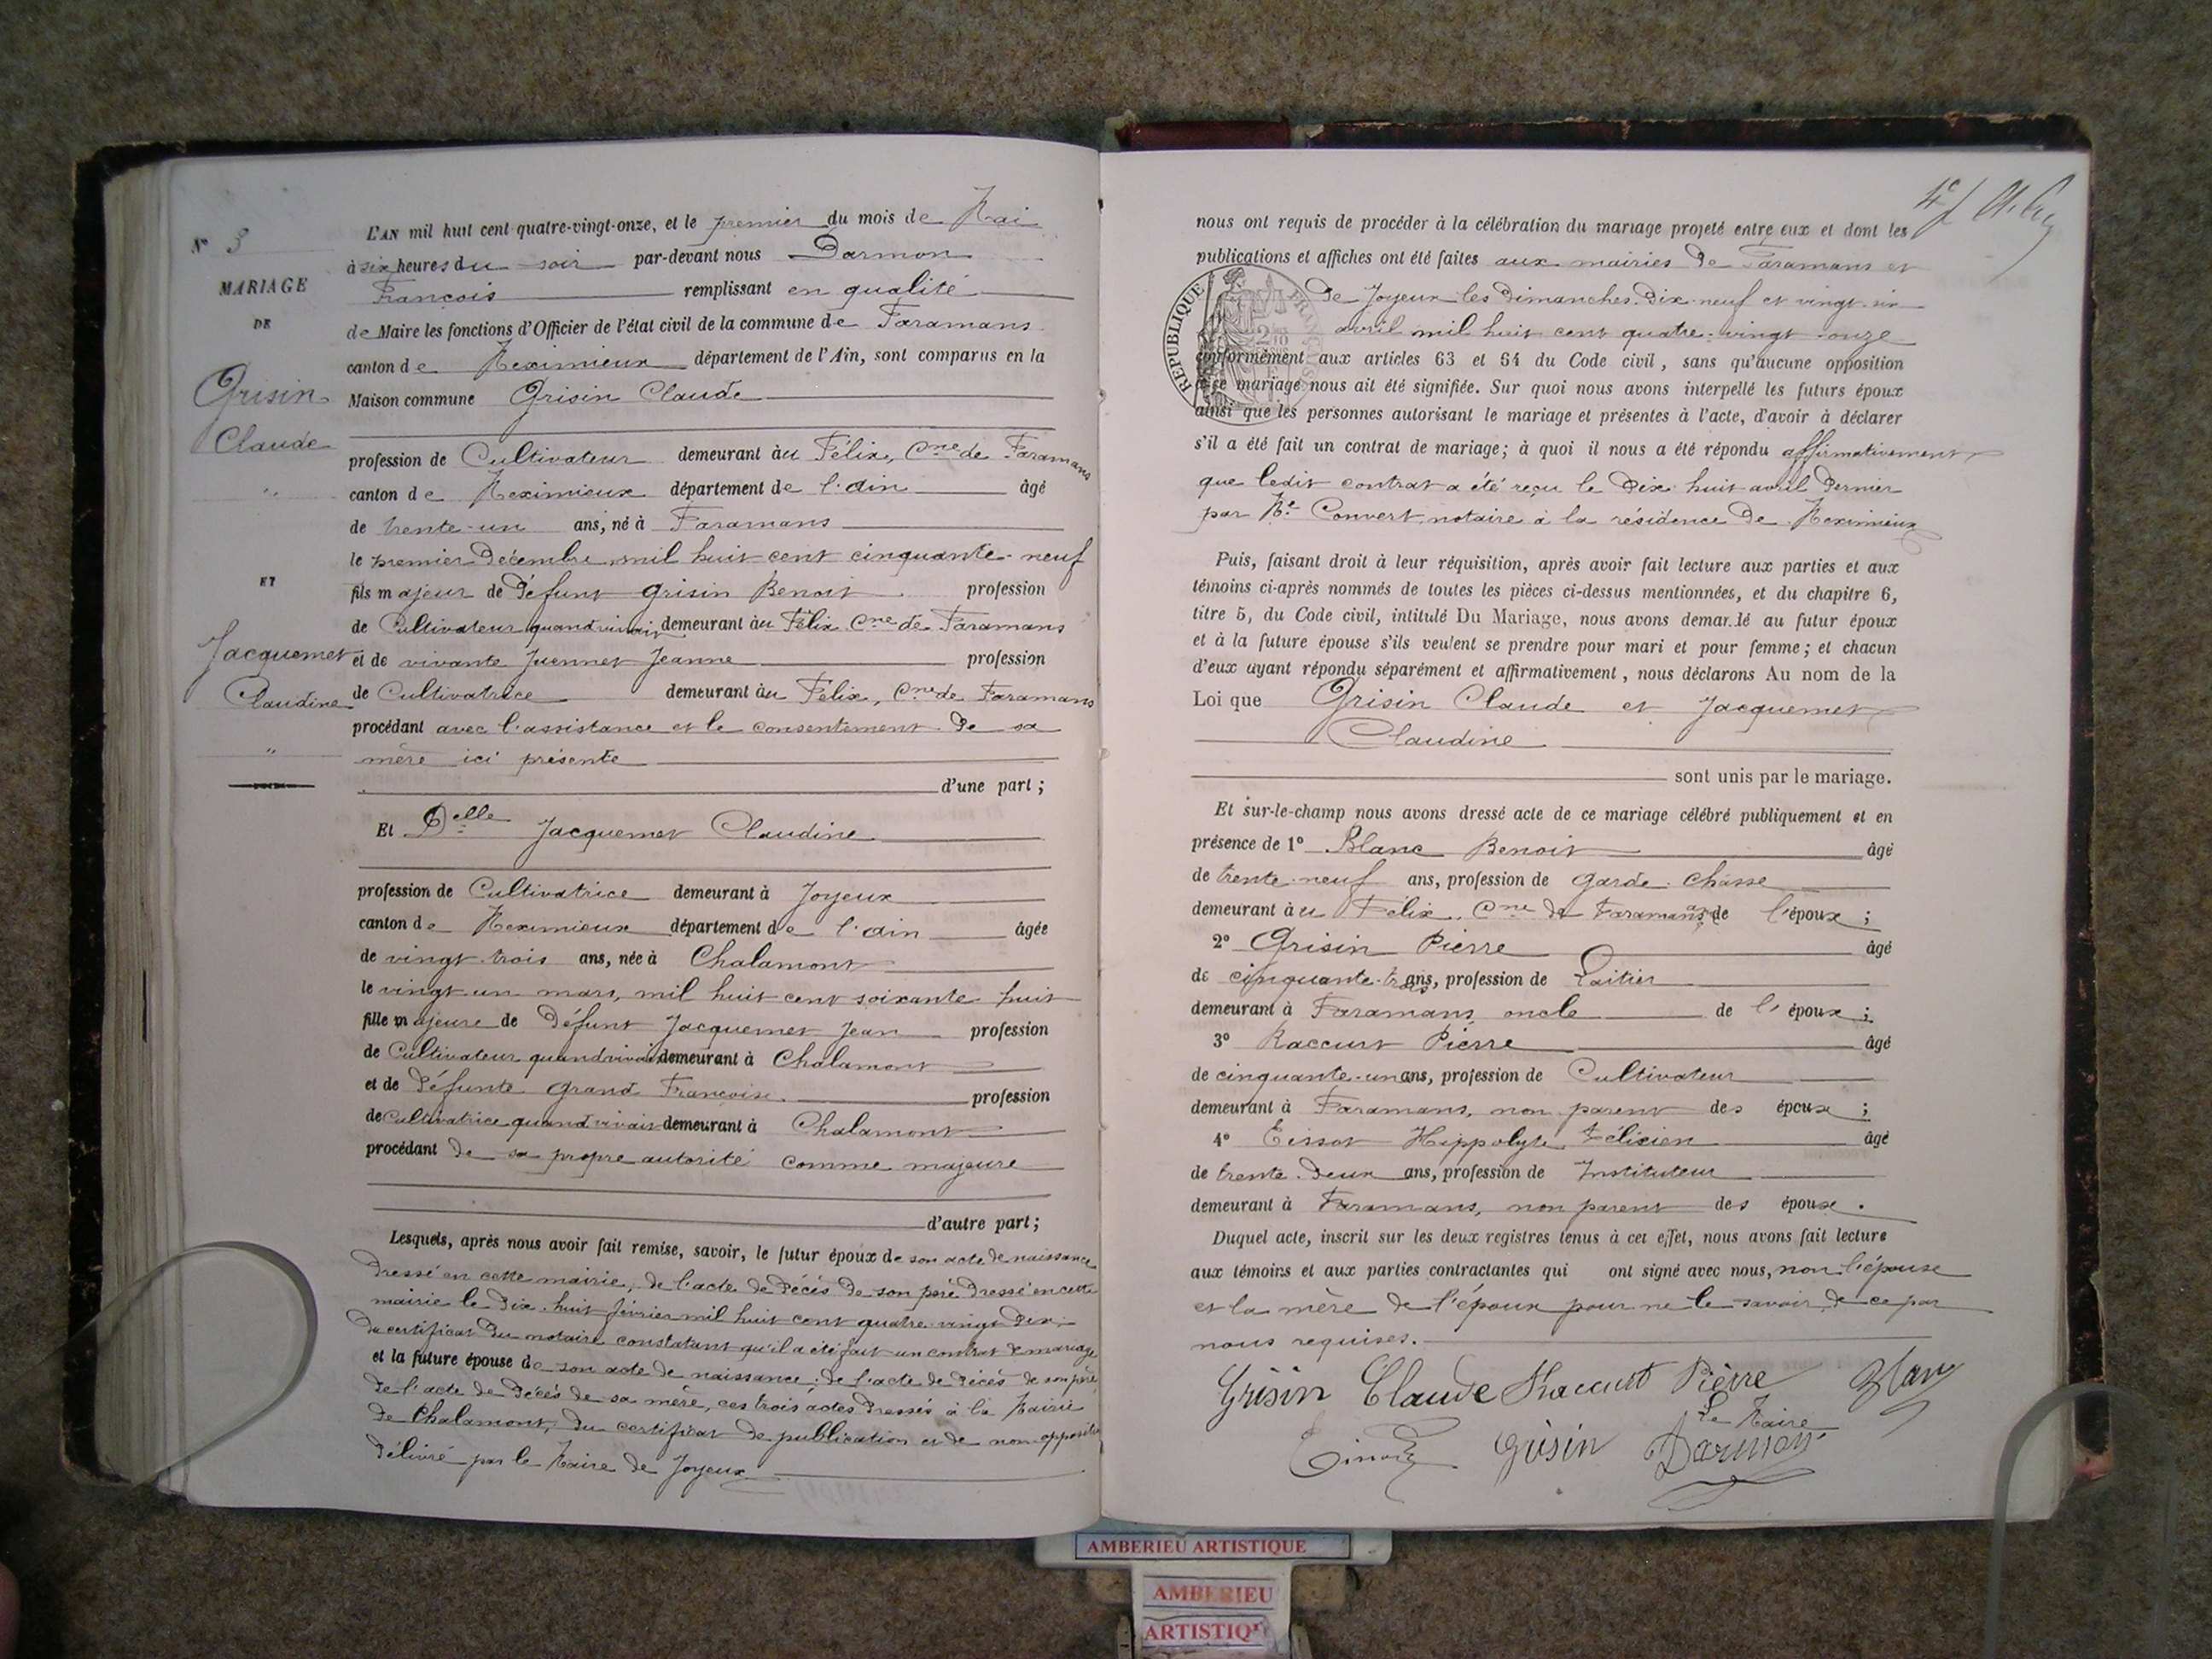 N° 3
MARIAGE
DE
Grisin
Claude
"
ET
Jacquemet
Claudine
"
L'AN mil huit cent quatre-vingt-onze, et le premier du mois de Mai
à six heures du soir par-devant nous Darmon
François remplissant en qualité
de Maire les fonctions d'Officier de l'état civil de la commune de Faramans
canton de Meximieux département de l'Ain, sont comparus en la
Maison commune Grisin Claude
profession de Cultivateur demeurant àu Félix, Cne de Faramans
canton de Meximieux département de l'ain âgé
de trente-un ans, né à Faramans
le premier Décembre, mil huit cent cinquante-neuf
fils majeur de Défunt Grisin Benoit profession
de Cultivateur quand vivait demeurant àu Félix Cne de Faramans
et de vivante Juennet Jeanne profession
de Cultivatrice demeurant àu Félix, Cne de Faramans
procédant avec l'assistance et le consentement de sa
mère ici présente
d'une part ;
Et Delle Jacquemet Claudine
profession de Cultivatrice demeurant à Joyeux
canton de Meximieux département de l'ain âgée
de vingt-trois ans, née à Chalamont
le vingt-un mars, mil huit cent soixante-huit
fille majeure de Défunt Jacquemet Jean profession
de Cultivateur quand vivait demeurant à Chalamont
et de Défunte Grand Françoise profession
de Cultivatrice quand vivait demeurant à Chalamont
procédant de sa propre autorité comme majeure
d'autre part ;
Lesquels, après nous avoir fait remise, savoir, le futur époux de son acte de naissance
Dressé en cette mairie, de l'acte de Décès de son père Dressé en cette
mairie le Dix-huit février mil huit cent quatre-vingt Dix ;
du certificat du notaire constatant qu'il a été fait un contrat de mariage
et la future épouse de son acte de naissance ; de l'acte de Décès de son père,
de l'acte de Décès de sa mère, ces trois actes Dressés à la Mairie
de Chalamont, du certificat de publication et de non opposition
Délivré par le Maire de Joyeux
nous ont requis de procéder à la célébration du mariage projeté entre eux et dont les
publications et affiches ont été faites aux mairies de Faramans et
de Joyeux les Dimanches Dix-neuf et vingt-six
avril mil huit cent quatre-vingt-onze
RÉPUBLIQUE FRANÇAISE
conformément aux articles 63 et 64 du Code civil, sans qu'aucune opposition
à ce mariage nous ait été signifiée. Sur quoi nous avons interpellé les futurs époux
ainsi que les personnes autorisant le mariage et présentes à l'acte, d'avoir à déclarer
s'il a été fait un contrat de mariage ; à quoi il nous a été répondu affirmativement
que ledit contrat a été reçu le Dix-huit avril Dernier
par Me Convert, notaire à la résidence de Meximieux
Puis, faisant droit à leur réquisition, après avoir fait lecture aux parties et aux
témoins ci-après nommés de toutes les pièces ci-dessus mentionnées, et du chapitre 6,
titre 5, du Code civil, intitulé Du Mariage, nous avons demandé au futur époux
et à la future épouse s'ils veulent se prendre pour mari et pour femme ; et chacun
d'eux ayant répondu séparément et affirmativement, nous déclarons Au nom de la
Loi que Grisin Claude et Jacquemet
Claudine
sont unis par le mariage.
Et sur-le-champ nous avons dressé acte de ce mariage célébré publiquement et en
présence de 1° Blanc Benoit âgé
de trente-neuf ans, profession de garde-chasse
demeurant àu Félix, Cne de Faramans, de l'époux ;
2° Grisin Pierre âgé
de cinquante-trois ans, profession de Laitier
demeurant à Faramans oncle de l'époux ;
3° Raccurt Pierre âgé
de cinquante-un ans, profession de Cultivateur
demeurant à Faramans, non parent des époux ;
4° Hippolyte Félicien âgé
de trente-Deux ans, profession de Instituteur
demeurant à Faramans, non parent des époux.
Duquel acte, inscrit sur les deux registres tenus à cet effet, nous avons fait lecture
aux témoins et aux parties contractantes qui ont signé avec nous, non l'épouse
et la mère de l'époux pour ne le savoir, de ce par
nous requises.
Grisin Claude Raccurt Pierre Blanc
Le Maire
Grisin Darmon
AMBERIEU ARTISTIQUE
AMBERIEU
ARTISTIQ